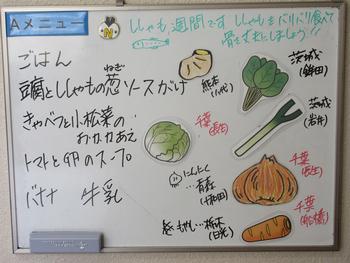 Aメニュー
ししゃも週間です ししゃもをバリバリ食べて
骨を丈夫にしましょう!!
ごはん
豆腐とししゃもの葱ソースがけ
ねぎ
キャベツと小松菜の
おかかあえ
トマトと卵のスープ
バナナ 牛乳
熊本
(八代)
茨城
(鉾田)
茨城
(岩井)
千葉
(長生)
千葉
(長生)
にんにく
青森
(十和田)
千葉
(船橋)
もやし…栃木
(日光)